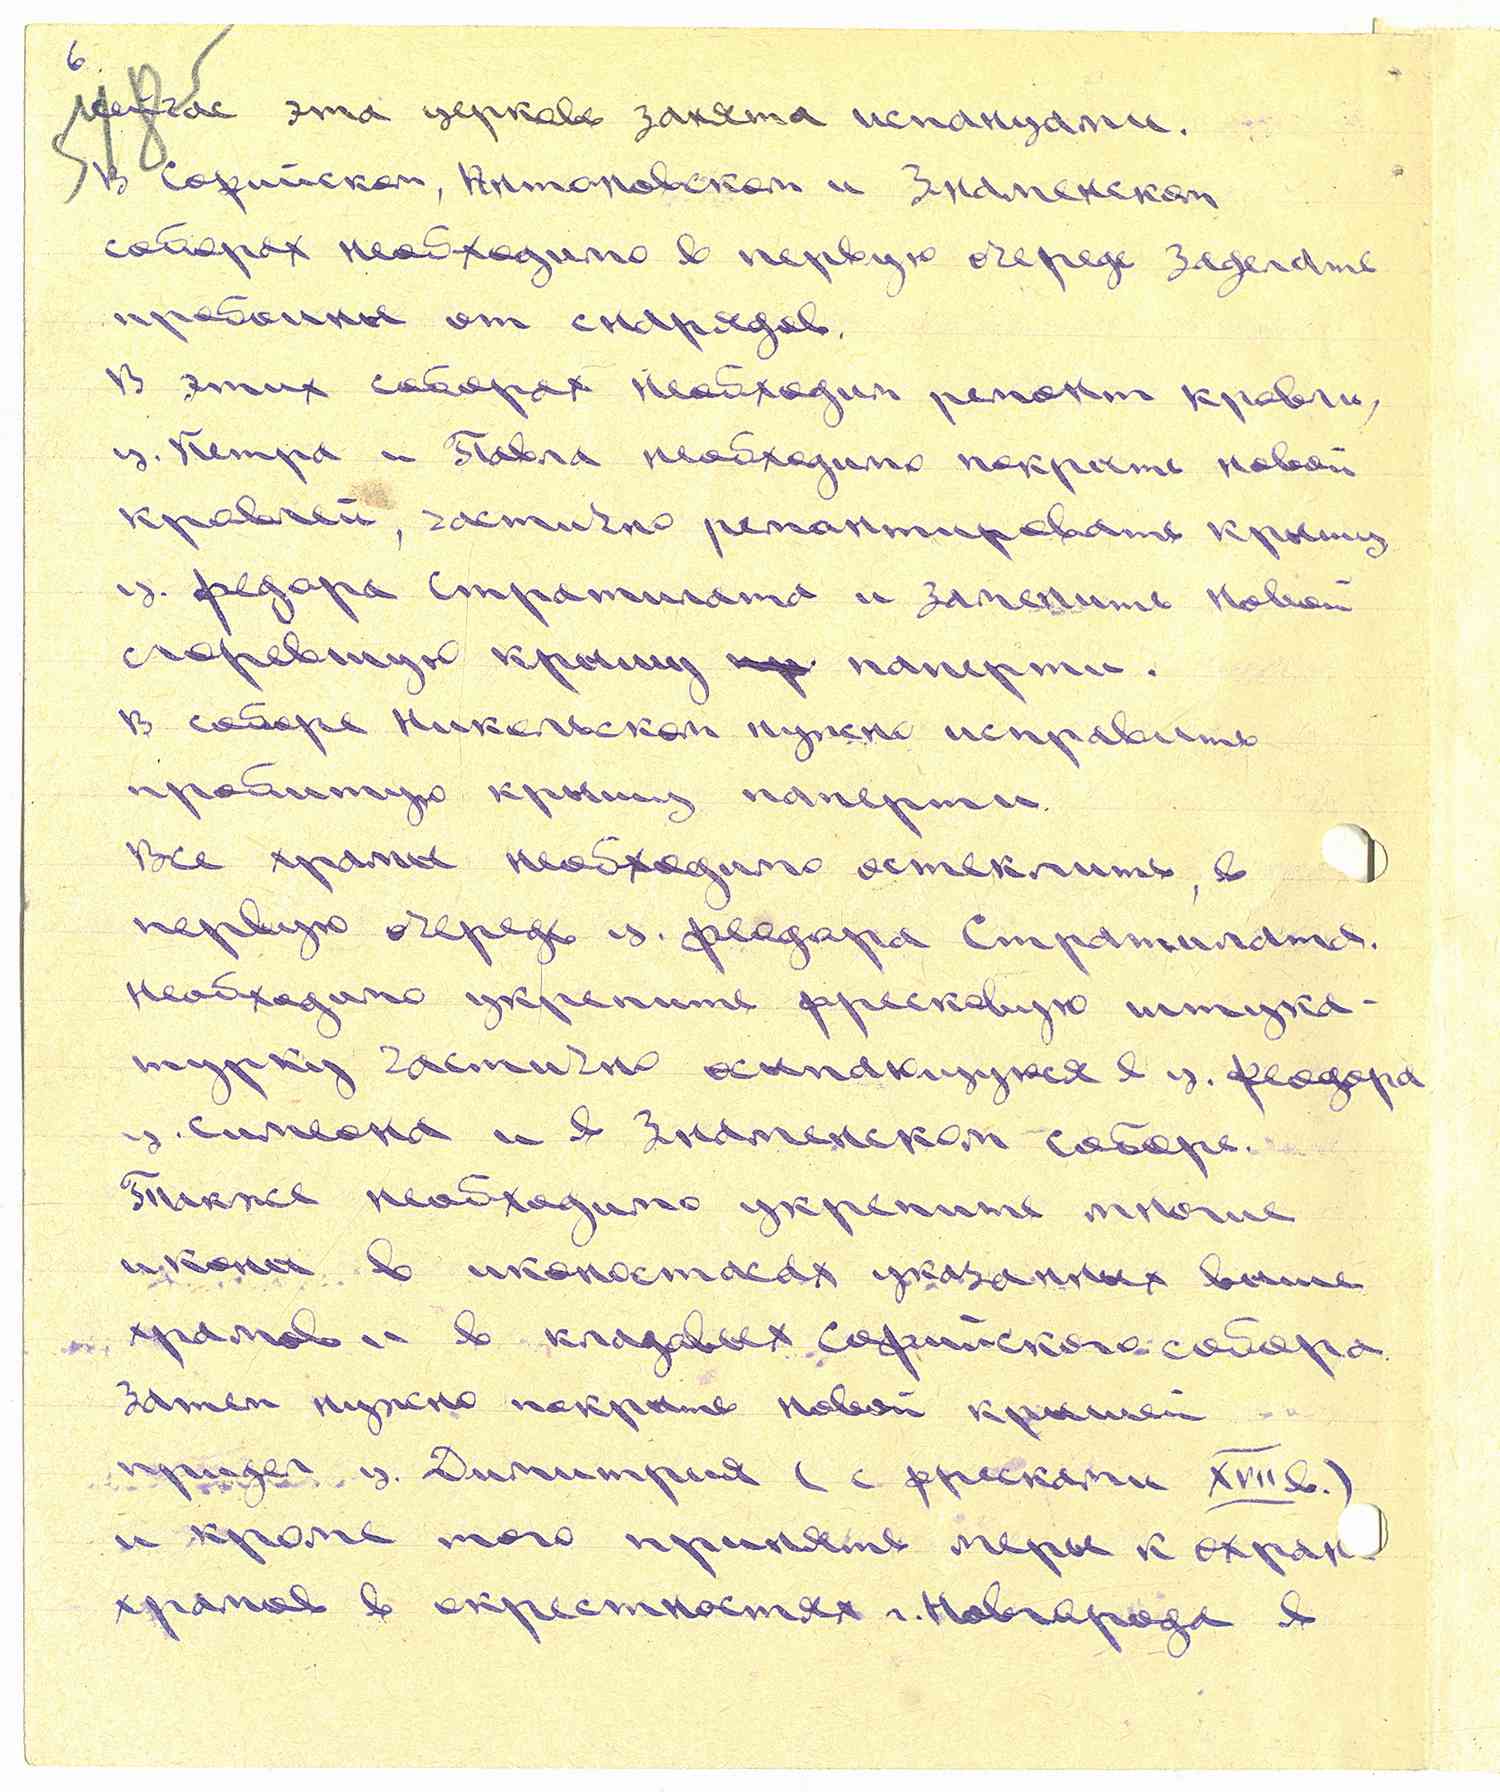 6.
сейчас эта церковь занята испанцами.
В Софийском, Антоновском и Знаменском
соборах необходимо в первую очередь заделать
пробоины от снарядов.
В этих соборах необходим ремонт кровли,
ц. Петра и Павла необходимо покрыть новой
кровлей, частично ремонтировать крышу
ц. Федора Стратилата и заменить новой
сгоревшую крышу паперти.
В соборе Никольском нужно исправить
пробитую крышу паперти.
Все храмы необходимо остеклить, в
первую очередь ц. Феодора Стратилата.
Необходимо укрепить фресковую штука-
турку частично осыпающуюся в ц. Феодора
ц. Симеона и в Знаменском соборе.
Также необходимо укрепить многие
иконы в иконостасах указанных выше
храмов и в кладовых Софийского собора.
Затем нужно покрыть новой крышей
придел ц. Димитрия (с фресками XVII в.)
и кроме того принять меры к охран
храмов в окрестностях г. Новгорода в